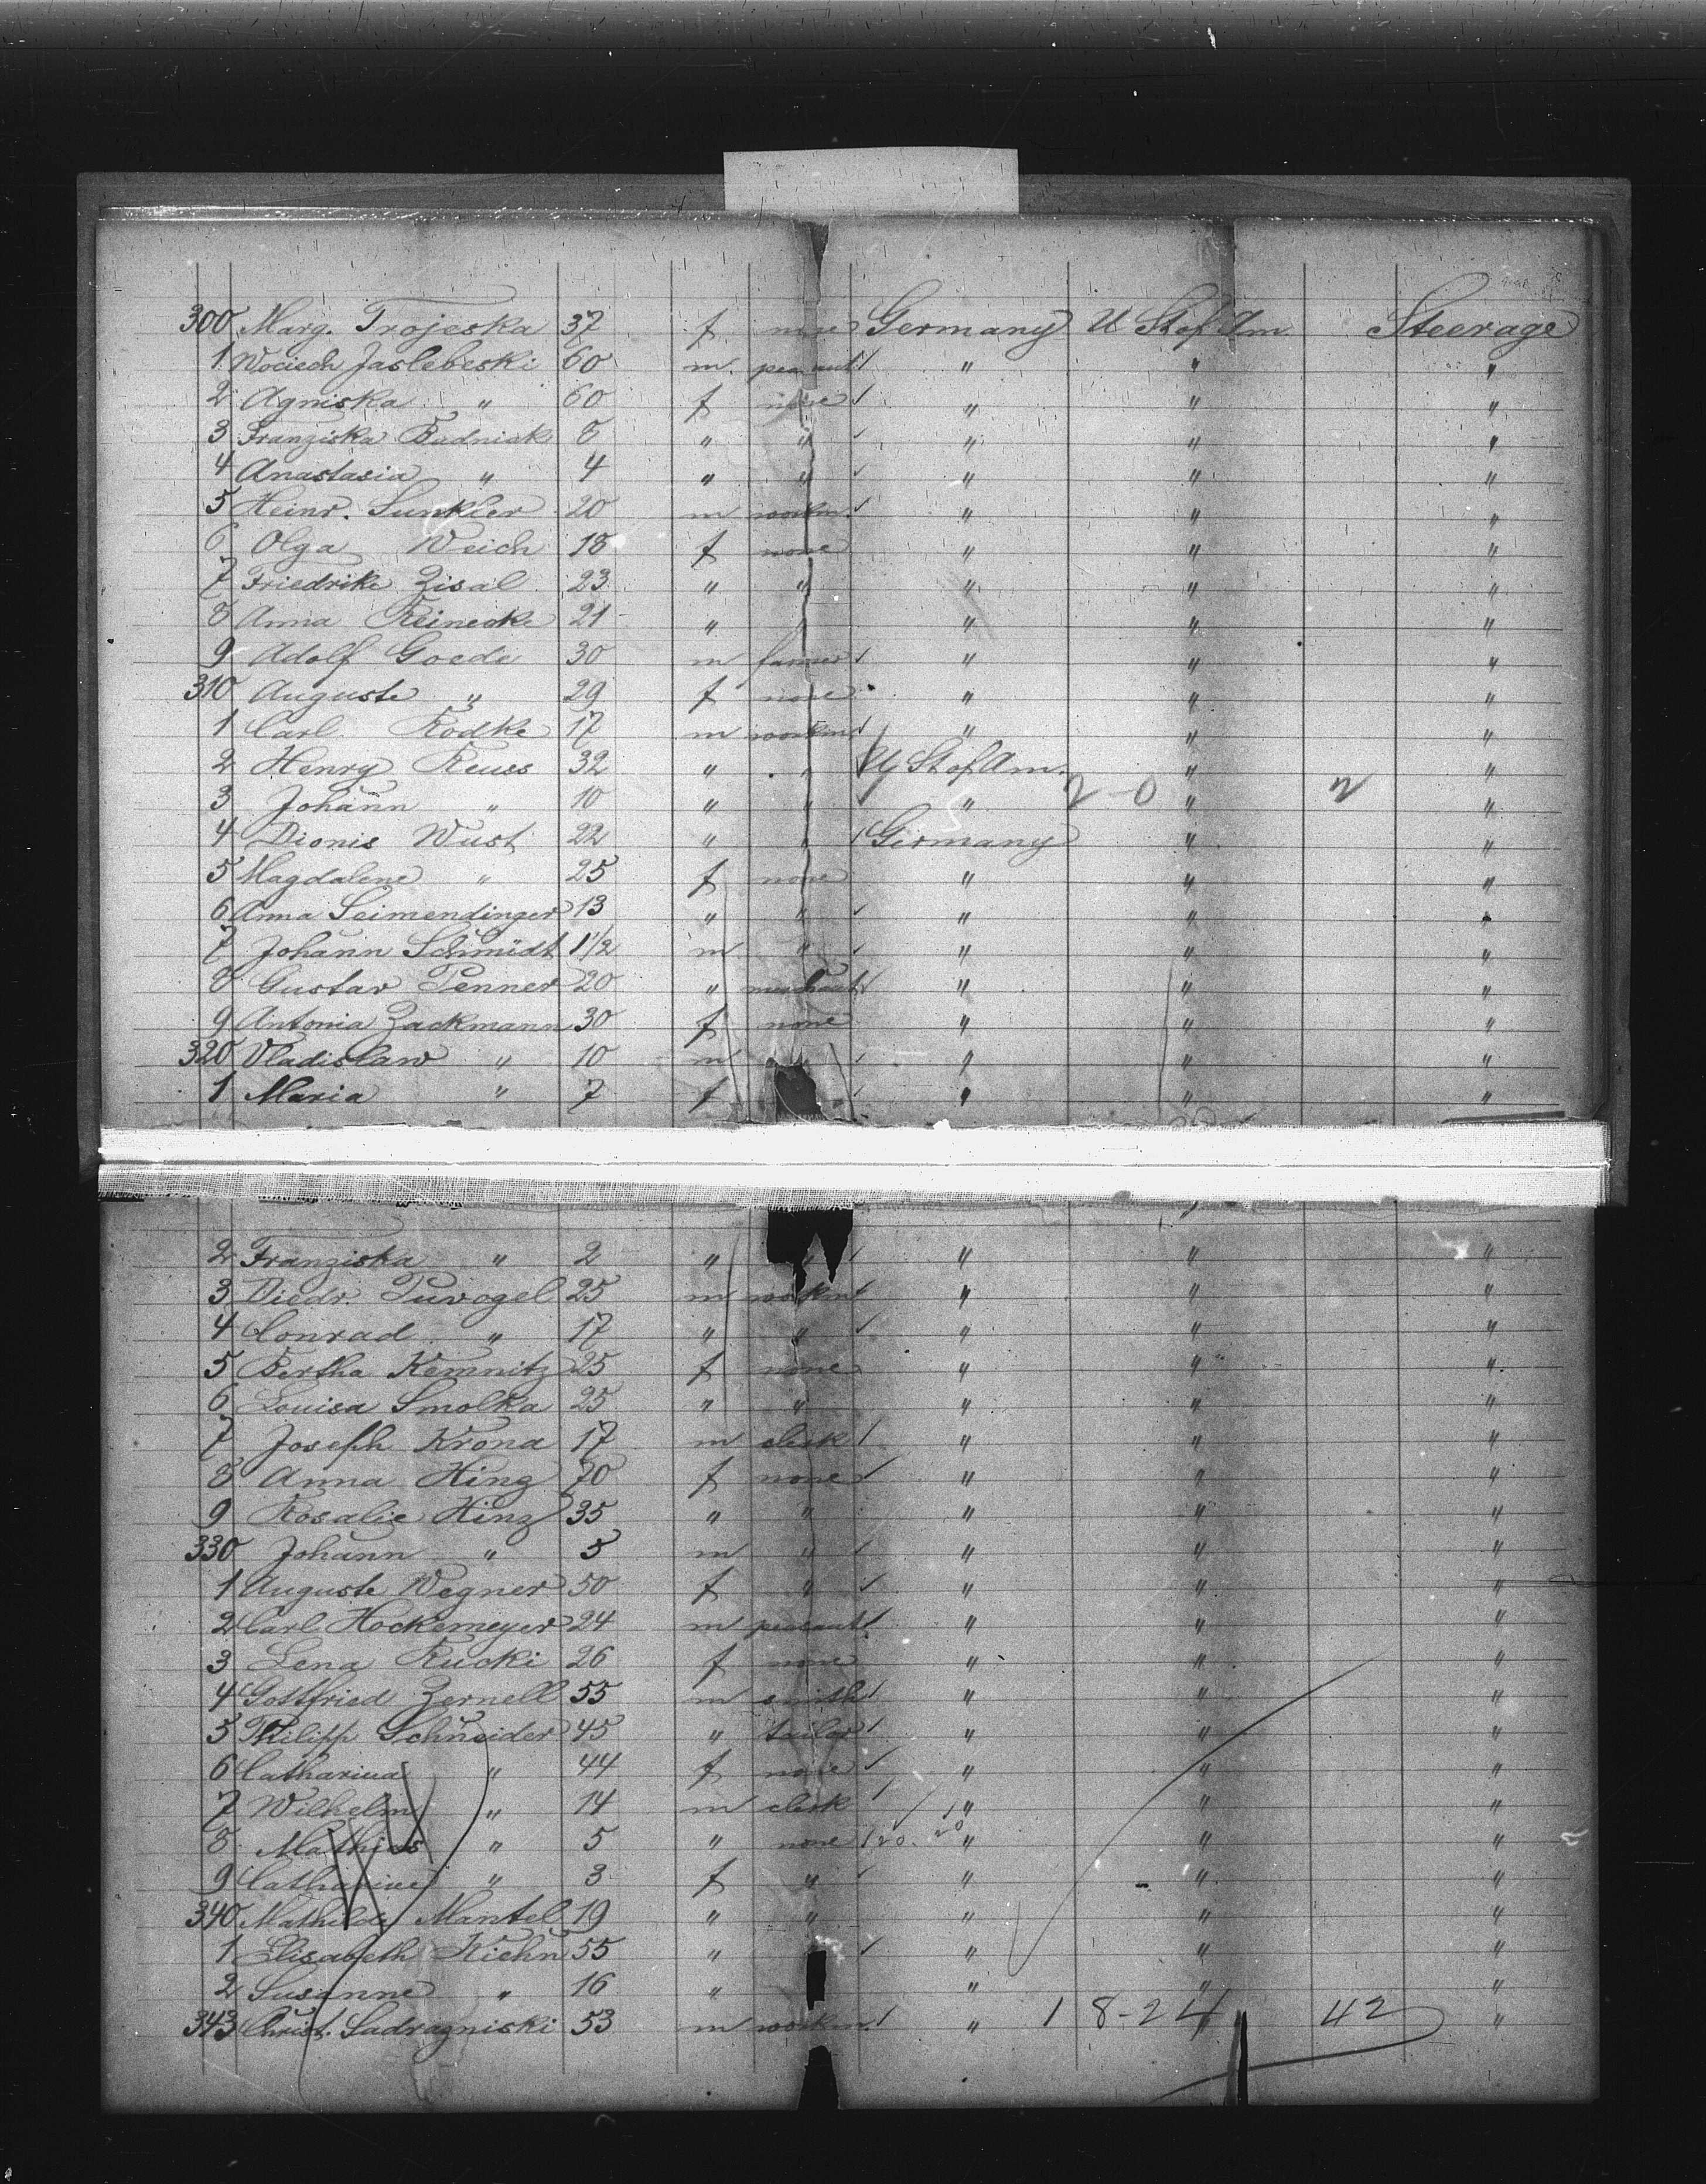 300 Marg. Trojeska 37 f none Germany U St of Am. Steerage
1 Wociech Jaslebeski 60 m. peasant " " "
2 Agniska " 60 f none " " "
3 Franziska Badniak 8 " " " " "
4 Anastasia " 4 " " " " "
5 Heinr. Sunkler 20 m workm. " " "
6 Olga Weich 18 f none " " "
7 Friedrike Zisal 23 " " " " "
8 Anna Reinecke 21 " " " "
9 Adolf Goede 30 m farmer " " "
310 Auguste " 29 f none " " "
1 Carl Rodke 17 m workm " " "
2 Henry Reuss 32 " " U St of Am. " "
3 Johann " 10 " " " 2-0 " 2 "
4 Dionis Wust 22 " " Germany " "
5 Magdalene " 25 f none " " "
6 Anna Seimendinger 13 " " " " "
7 Johann Schmidt 1 1/2 m " " " "
8 Gustav Penner 20 " merchant " " "
9 Antonia Zackmann 30 f none " " "
320 Vladislaw " 10 m " " "
1 Maria " 7 f " " "
2 Franziska " 2 " " " "
3 Diedr. Tuvogel 25 m workm " " "
4 Conrad " 17 " " " " "
5 Bertha Kemnitz 25 f none " " "
6 Louisa Smolka 25 " " " " "
7 Joseph Krona 17 m clerk " " "
8 Anna Hinz 70 f none " " "
9 Rosalie Hinz 35 " " " " "
330 Johann " 5 m " " " "
1 Auguste Wegner 50 f " " " "
2 Carl Hockemeyer 24 m peasant " " "
3 Lena Rucki 26 f none " " "
4 Gottfried Zernell 55 m smith " " "
5 Philipp Schneider 45 " tailor " " "
6 Catharina " 44 f none " " "
7 Wilhelm " 14 m clerk " " "
8 Mathias " 5 " none 20. 20 " " "
9 Catharine " 3 f " " " "
340 Mathilde Mantel 19 " " " " "
1 Elisabeth Kiehn 55 " " " "
2 Susanne " 16 " " " "
343 Christ. Sadragniski 53 m workm. " 18-24 42 "